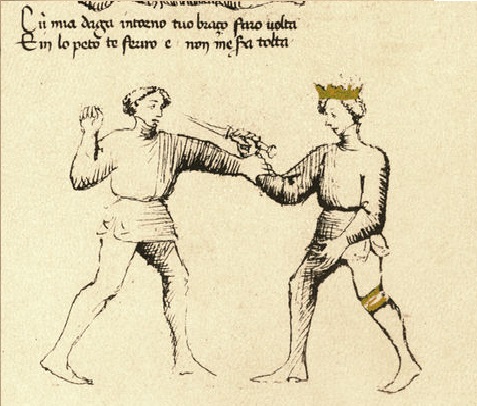 Cū mia daga intorno tuo braço faro volta
E in lo peto te feriro e non me sra tolta